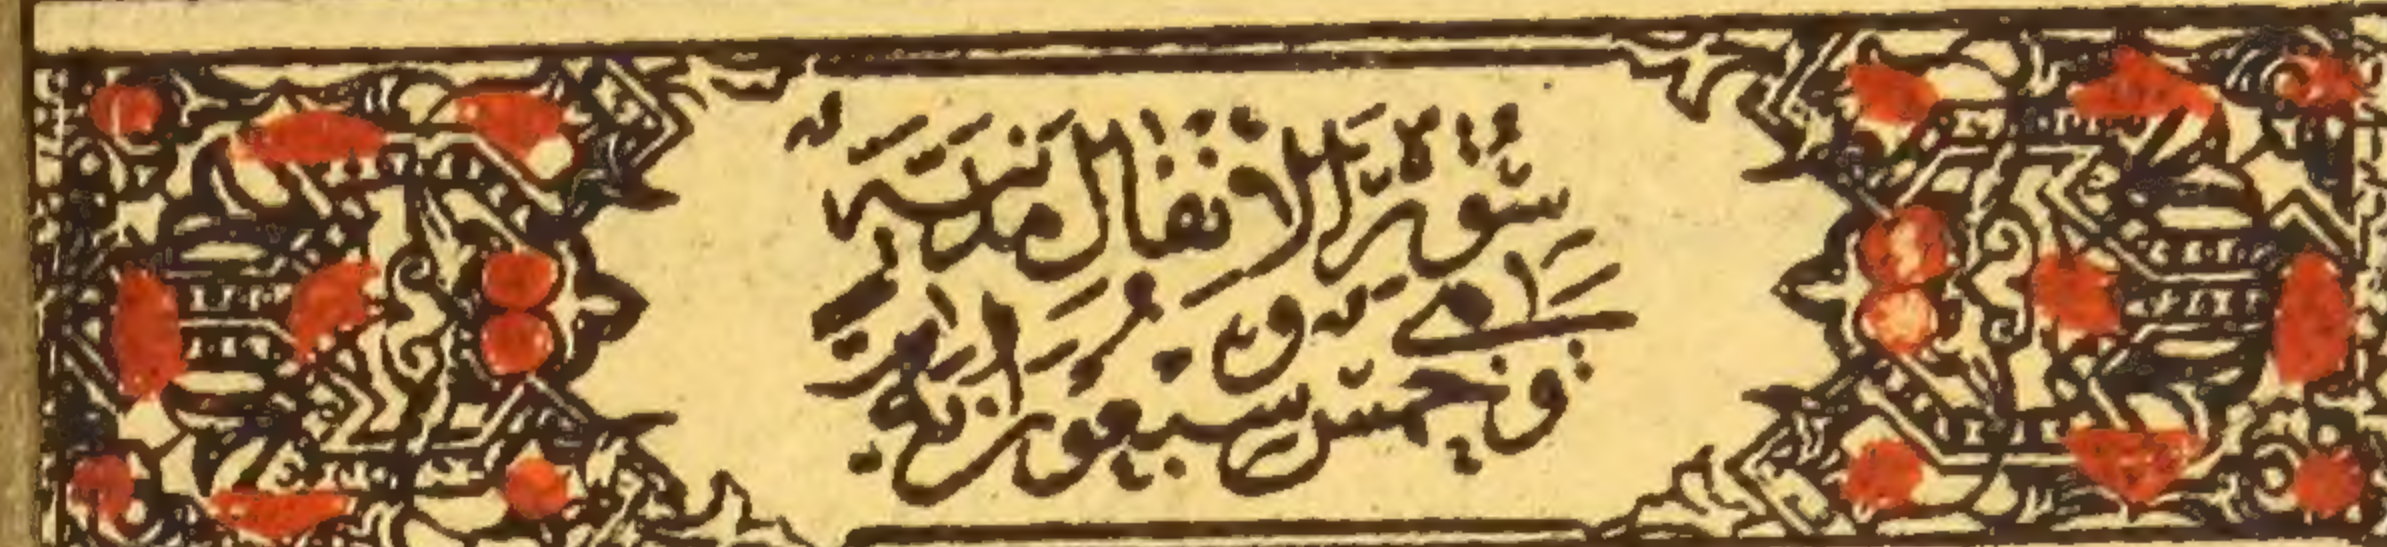 سُورَةُ الْاَنْفَالِ مَدَنِيَّةٌ
وَهِىَ خَمْسٌ وَسَبْعُونَ اٰيَةً